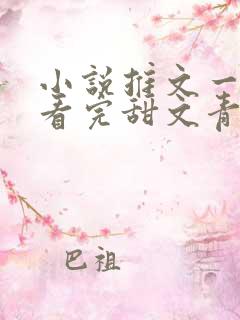 小说推文一
看完甜文青
巴祖